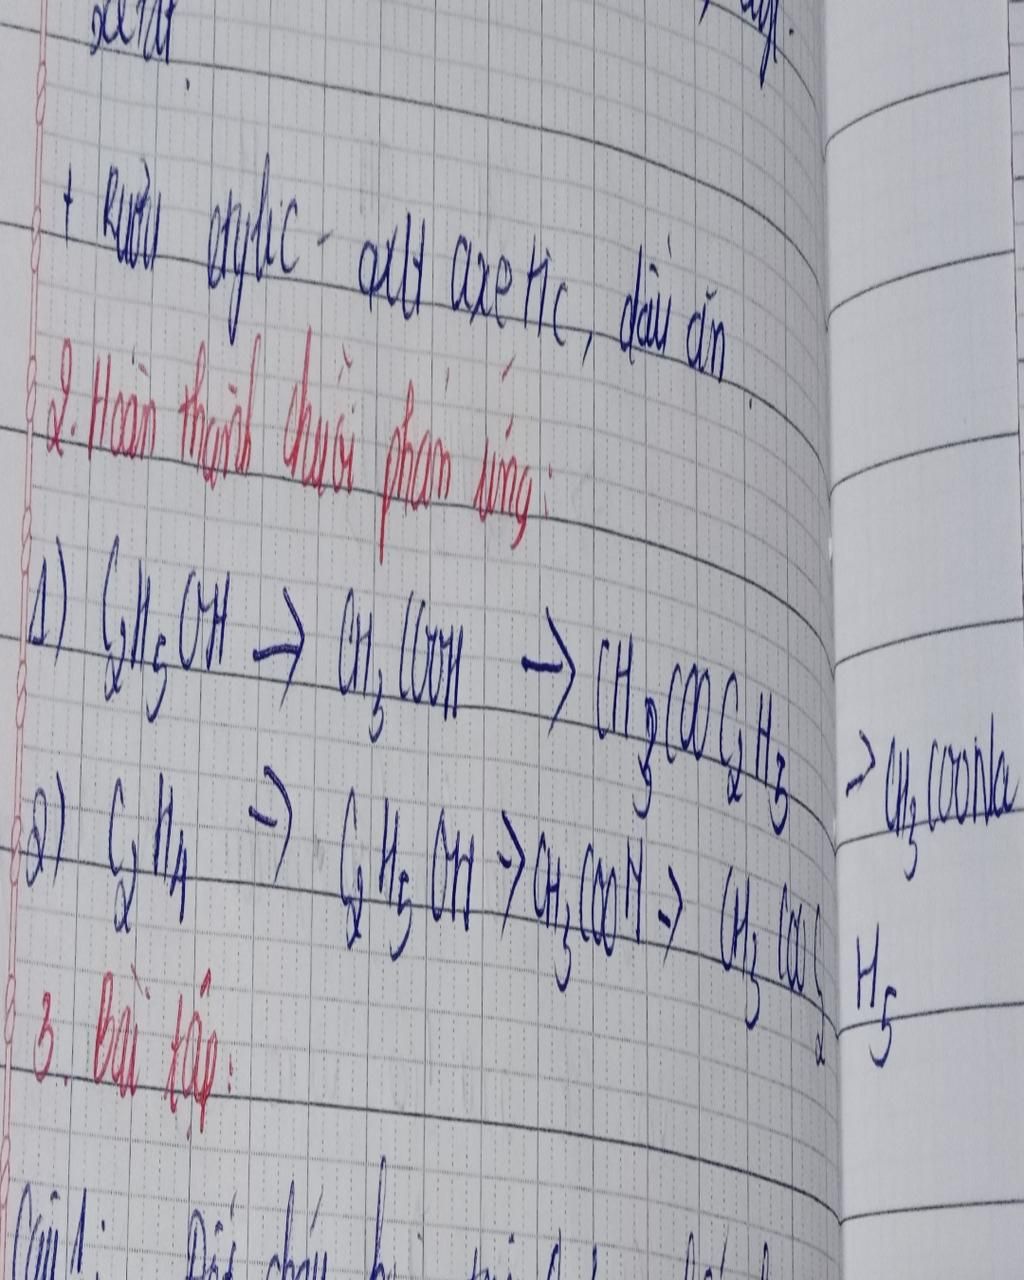 + Rượu etylic - axit axetic, dầu ăn
2. Hoàn thành chuỗi phản ứng:
1) C₂H₅OH → CH₃COOH → CH₃COOC₂H₅ → CH₃COONa
2) C₂H₄ → C₂H₅OH → CH₃COOH → CH₃COOC₂H₅
3. Bài tập:
Câu 1: Đốt cháy